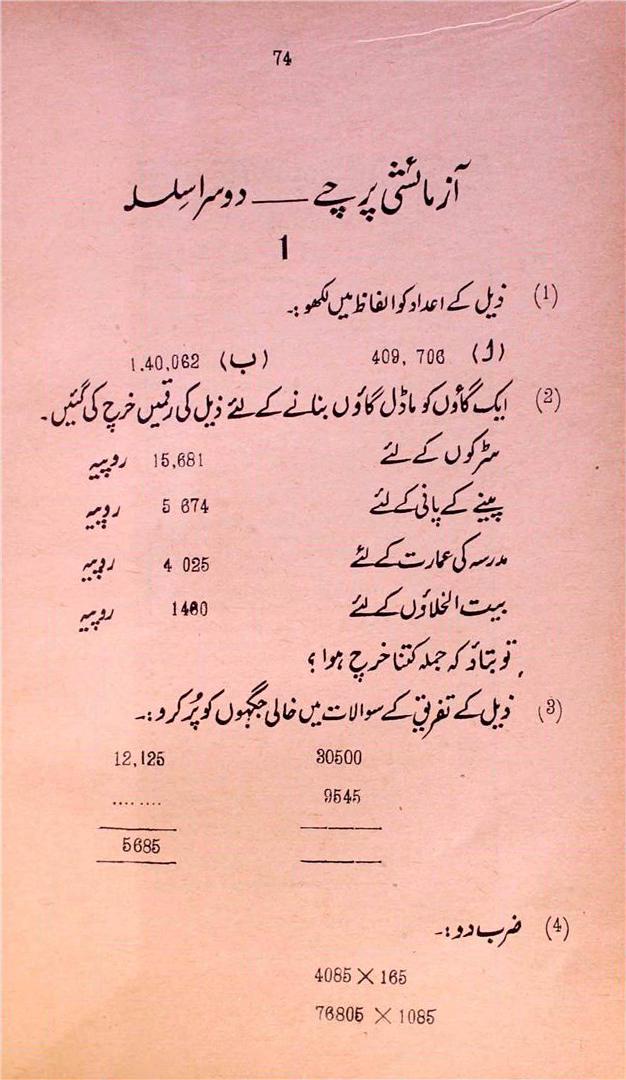 74
آزمائشی پرچے — دوسرا سلسلہ
1
(1) ذیل کے اعداد کو الفاظ میں لکھو :۔
(ا) 409, 706 (ب) 1.40,062
(2) ایک گاؤں کو ماڈل گاؤں بنانے کے لئے ذیل کی رقمیں خرچ کی گئیں ۔
سڑکوں کے لئے 15,681 روپیہ
پینے کے پانی کے لئے 5 674 روپیہ
مدرسہ کی عمارت کے لئے 4 025 روپیہ
بیت الخلاؤں کے لئے 1480 روپیہ
تو بتاؤ کہ جملہ کتنا خرچ ہوا ؟
(3) ذیل کے تفریق کے سوالات میں خالی جگہوں کو پُر کرو :۔
30500 12,125
9545 ........
5685
(4) ضرب دو :۔
4085 × 165
76805 × 1085